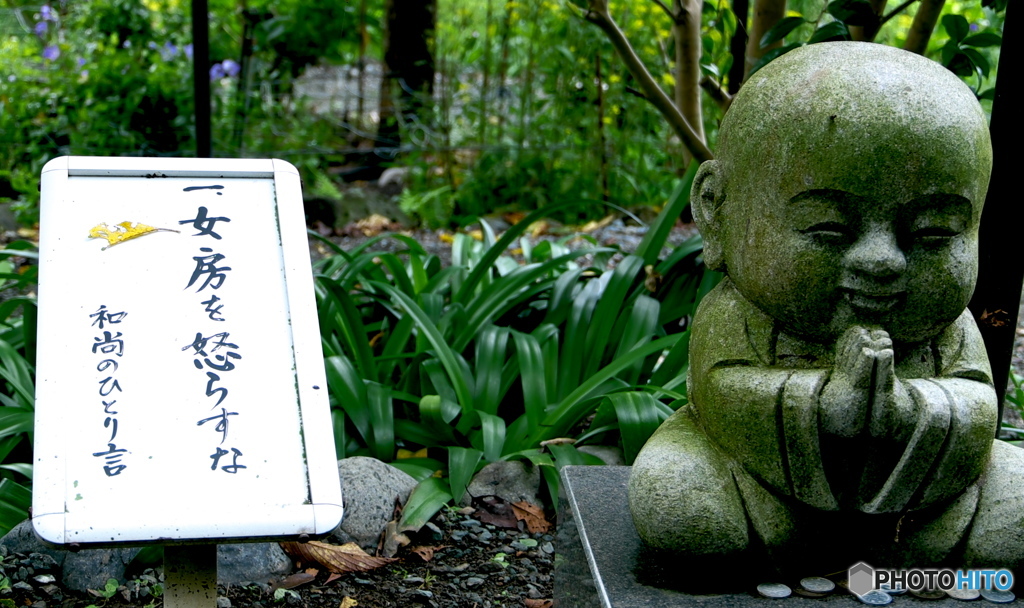 一、女房を怒らすな
和尚のひとり言
PHOTOHITO